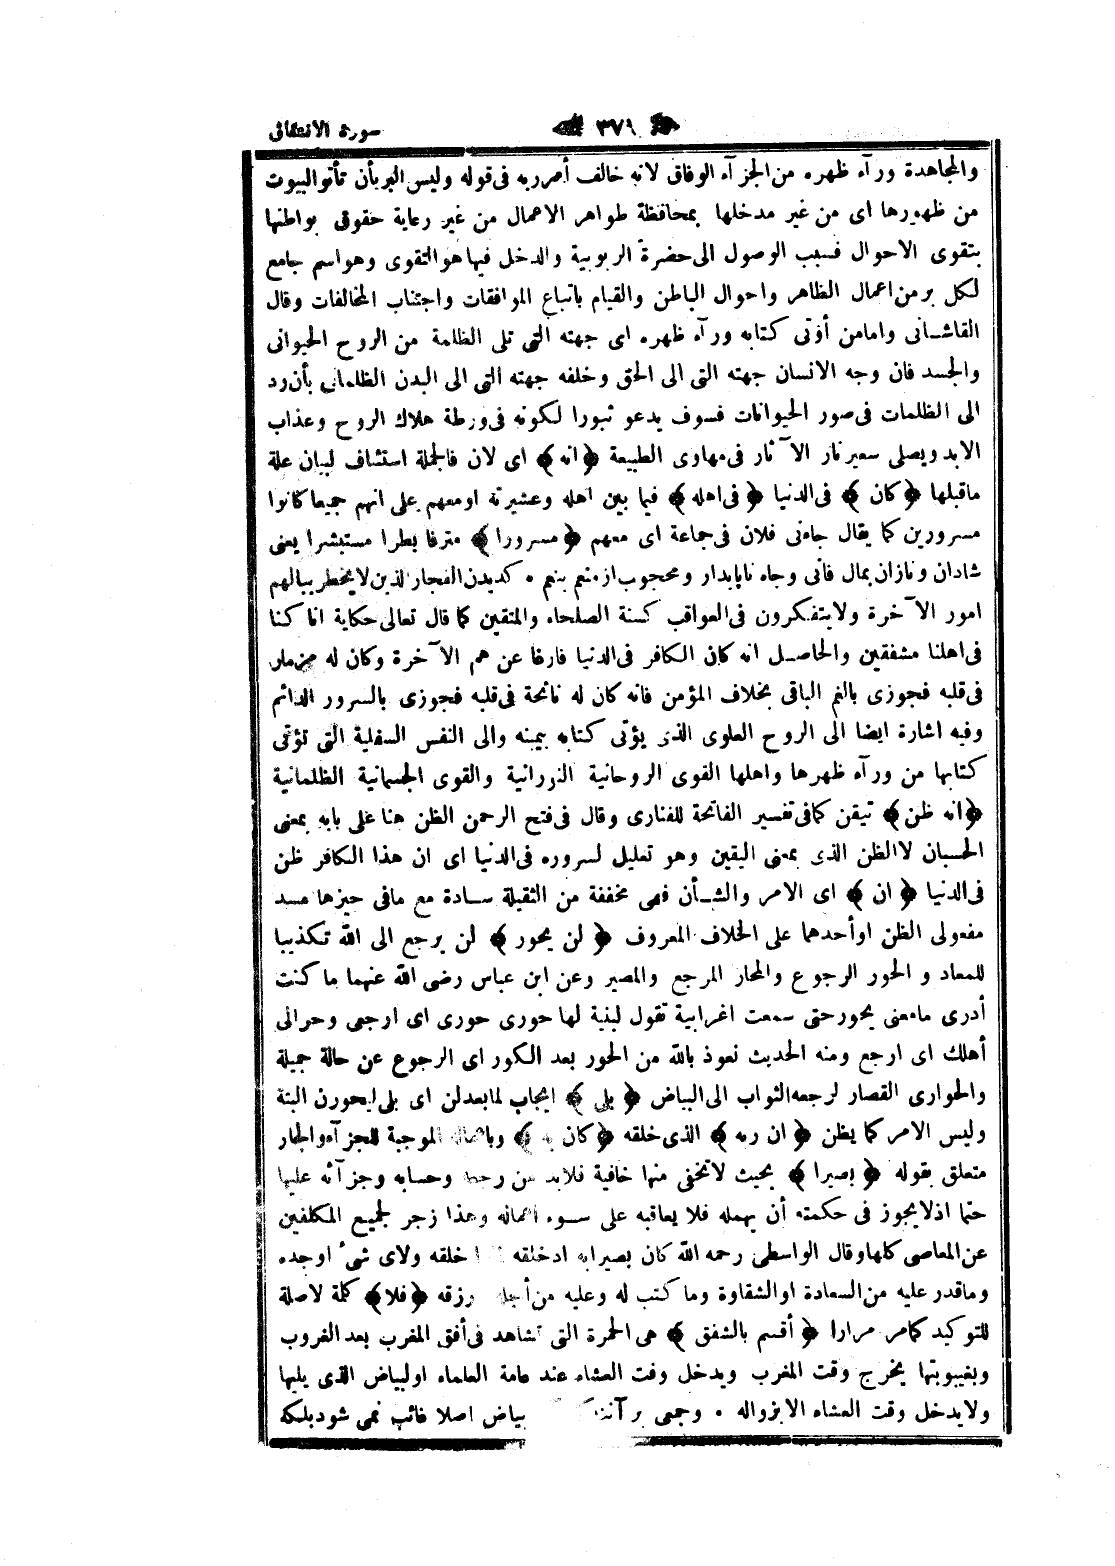 سورة الانشقاق
٣٧٩
والمجاهدة ورآء ظهره من الجزآء الوفاق لانه خالف أمر ربه فى قوله وليس البر بأن تأتوا البيوت
من ظهورها اى من غير مدخلها بمحافظة ظواهر الاعمال من غير رعاية حقوق بواطنها
بتقوى الاحوال فسبب الوصول الى حضرة الربوبية والدخل فيها هو التقوى وهو اسم جامع
لكل بر من اعمال الظاهر واحوال الباطن والقيام باتباع الموافقات واجتناب المخالفات وقال
القاشانى وامامن أوتى كتابه ورآء ظهره اى جهته التى تلى الظلمة من الروح الحيوانى
والجسد فان وجه الانسان جهته التى الى الحق وخلفه جهته التى الى البدن الظلمانى بأن رد
الى الظلمات فى صور الحيوانات فسوف يدعو ثبورا لكونه فى ورطة هلاك الروح وعذاب
الابد ويصلى سعير نار الآثار فى مهاوى الطبيعة ﴿انه﴾ اى لان فالجملة استئناف لبيان علة
ماقبلها ﴿كان﴾ فى الدنيا ﴿فى اهله﴾ فيما بين اهله وعشيرته اومعهم على انهم جميعا كانوا
مسرورين كما يقال جاءنى فلان فى جماعة اى معهم ﴿مسرورا﴾ مترفا بطرا مستبشرا يعنى
شادان ونازان بمال فانى وجاه ناپايدار ومحجوب از منعم بنعم ٠ كديدن الفجار الذين لايخطر ببالهم
امور الآخرة ولايتفكرون فى العواقب كسنة الصلحاء والمتقين كما قال تعالى حكاية انا كنا
فى اهلنا مشفقين والحاصل انه كان الكافر فى الدنيا فارغا عن هم الآخرة وكان له مزمار
فى قلبه فجوزى بالغم الباقى بخلاف المؤمن فانه كان له نائحة فى قلبه فجوزى بالسرور الدائم
وفيه اشارة ايضا الى الروح العلوى الذى يؤتى كتابه بيمينه والى النفس السفلية التى تؤتى
كتابها من ورآء ظهرها واهلها القوى الروحانية النورانية والقوى الجسمانية الظلمانية
﴿انه ظن﴾ تيقن كمافى تفسير الفاتحة للفنارى وقال فى فتح الرحمن الظن هنا على بابه بمعنى
الحسبان لا الظن الذى بمعنى اليقين وهو تعليل لسروره فى الدنيا اى ان هذا الكافر ظن
فى الدنيا ﴿ان﴾ اى الامر والشأن فهى مخففة من الثقيلة سادة مع مافى حيزها مسد
مفعولى الظن اوأحدهما على الخلاف المعروف ﴿لن يحور﴾ لن يرجع الى الله تكذيبا
للمعاد و الحور الرجوع والمحار المرجع والمصير وعن ابن عباس رضى الله عنهما ما كنت
أدرى مامعنى يحور حتى سمعت اعرابية تقول لبنية لها حورى حورى اى ارجعى وحر الى
أهلك اى ارجع ومنه الحديث نعوذ بالله من الحور بعد الكور اى الرجوع عن حالة جميلة
والحوارى القصار لرجعه الثواب الى البياض ﴿بلى﴾ ايجاب لمابعدلن اى بلى ليحورن البتة
وليس الامر كما يظن ﴿ان ربه﴾ الذى خلقه ﴿كان به﴾ وباعماله الموجبة للجزآء والجار
متعلق بقوله ﴿بصيرا﴾ بحيث لاتخفى منها خافية فلابد من رجعه وحسابه وجزآئه عليها
حتما اذلايجوز فى حكمته أن يهمله فلا يعاقبه على سوء اعماله وهذا زجر لجميع المكلفين
عن المعاصى كلها وقال الواسطى رحمه الله كان بصيرا به اذخلقه خلقه ولاى شىء اوجده
وماقدر عليه من السعادة او الشقاوة وما كتب له وعليه من أجله رزقه ﴿فلا﴾ كلمة لاصلة
للتوكيد كمامر مرارا ﴿أقسم بالشفق﴾ هى الحمرة التى تشاهد فى أفق المغرب بعد الغروب
وبغيبوبتها يخرج وقت المغرب ويدخل وقت العشاء عند عامة العلماء اوالبياض الذى يليها
ولايدخل وقت العشاء الابزواله ٠ وجمعى برآنند بياض اصلا غائب نمى شود بلكه